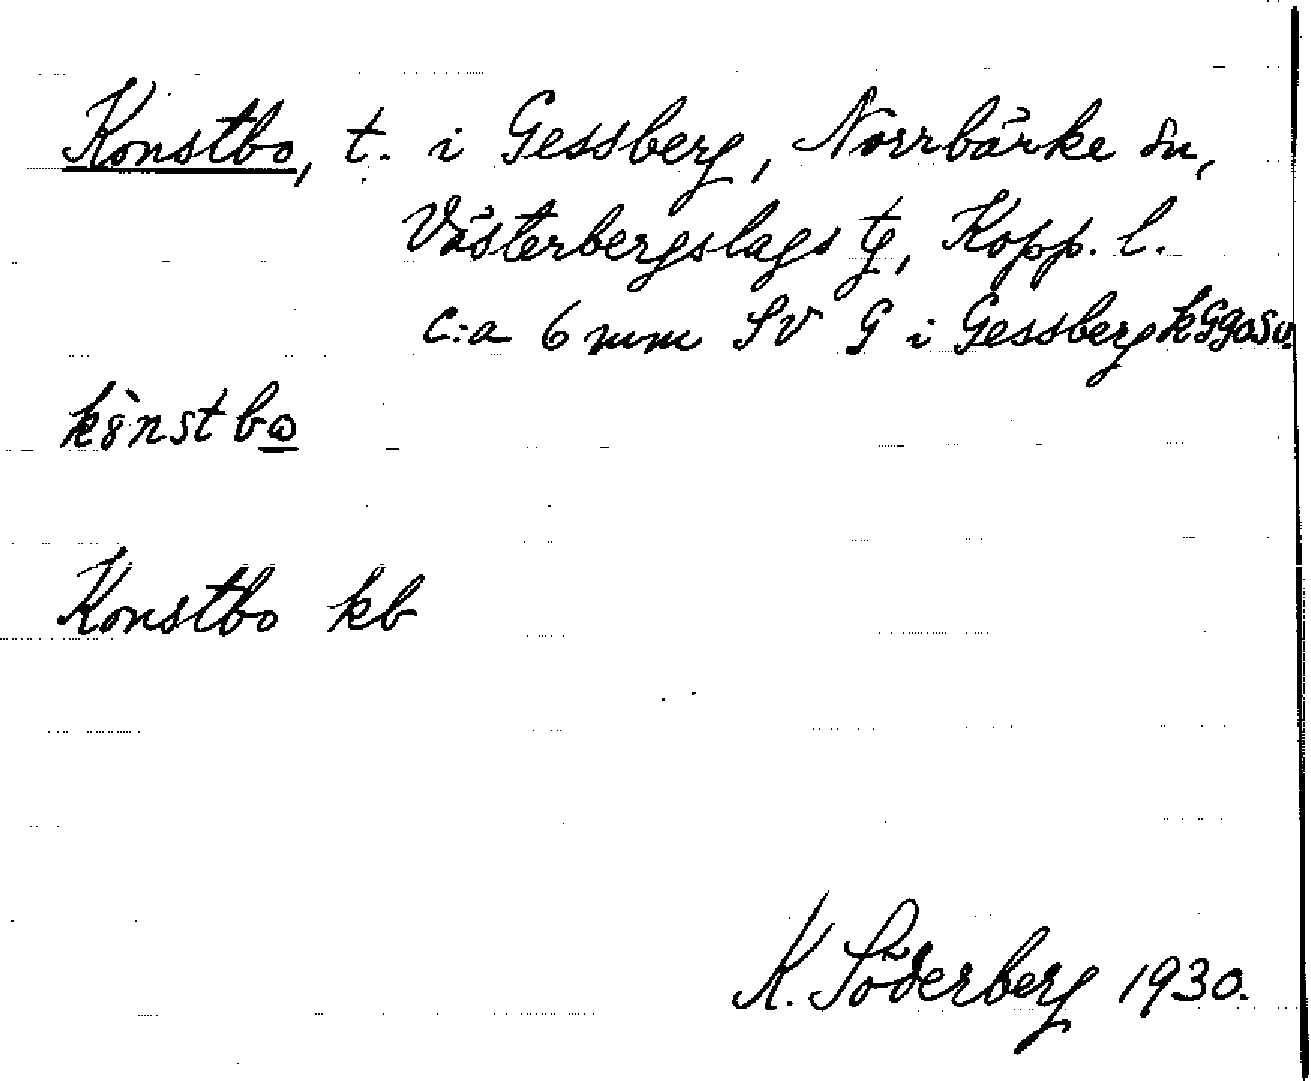 Konstbo, t. i Gessberg, Norrbärke sn,
Västerbergslags tg, Kopp. l.
c:a 6 mm SV G i Gessberg
Konstbo kb
K. Söderberg 1930.